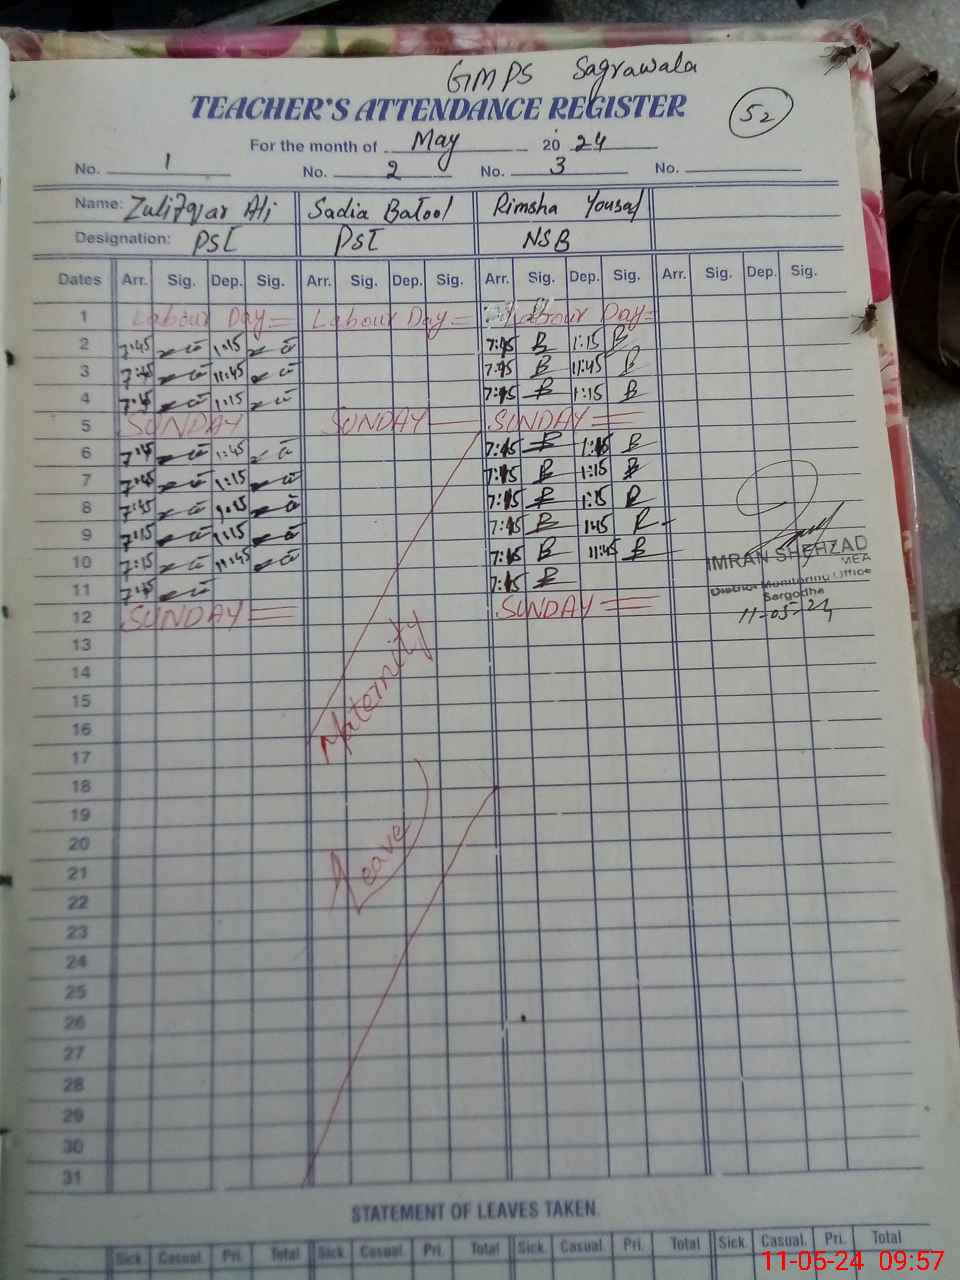 GMPS Sagrawala
TEACHER'S ATTENDANCE REGISTER
52
For the month of May 2024
No. 1 No. 2 No. 3 No.
Name: Zulifqar Ali Sadia Batool Rimsha Yousaf
Designation: PST PST NSB
Dates Arr. Sig. Dep. Sig. Arr. Sig. Dep. Sig. Arr. Sig. Dep. Sig. Arr. Sig. Dep. Sig.
1 Labour Day = Labour Day = Labour Day =
2 7:45 1:15 7:45 B 1:15 B
3 7:45 11:45 7:45 B 11:45 B
4 7:45 1:15 7:45 B 1:15 B
5 SUNDAY SUNDAY SUNDAY
6 7:45 1:45 7:45 B 1:15 B
7 7:45 1:15 7:45 B 1:15 B
8 7:45 1:15 7:45 B 1:15 B
9 7:15 1:15 7:45 B 1:15 B
10 7:15 11:45 7:45 B 11:45 B
11 7:45 7:45 B
12 SUNDAY SUNDAY
IMRAN SHEHZAD
MEA
District Monitoring Office
Sargodha
11-05-24
13
14
15
16
17
18
19
20
21
22
23
24
25
26
27
28
29
30
31
Maternity
Leave
STATEMENT OF LEAVES TAKEN.
Sick Casual. Pri. Total Sick Casual. Pri. Total Sick. Casual. Pri. Total Sick. Casual. Pri. Total
11-05-24 09:57